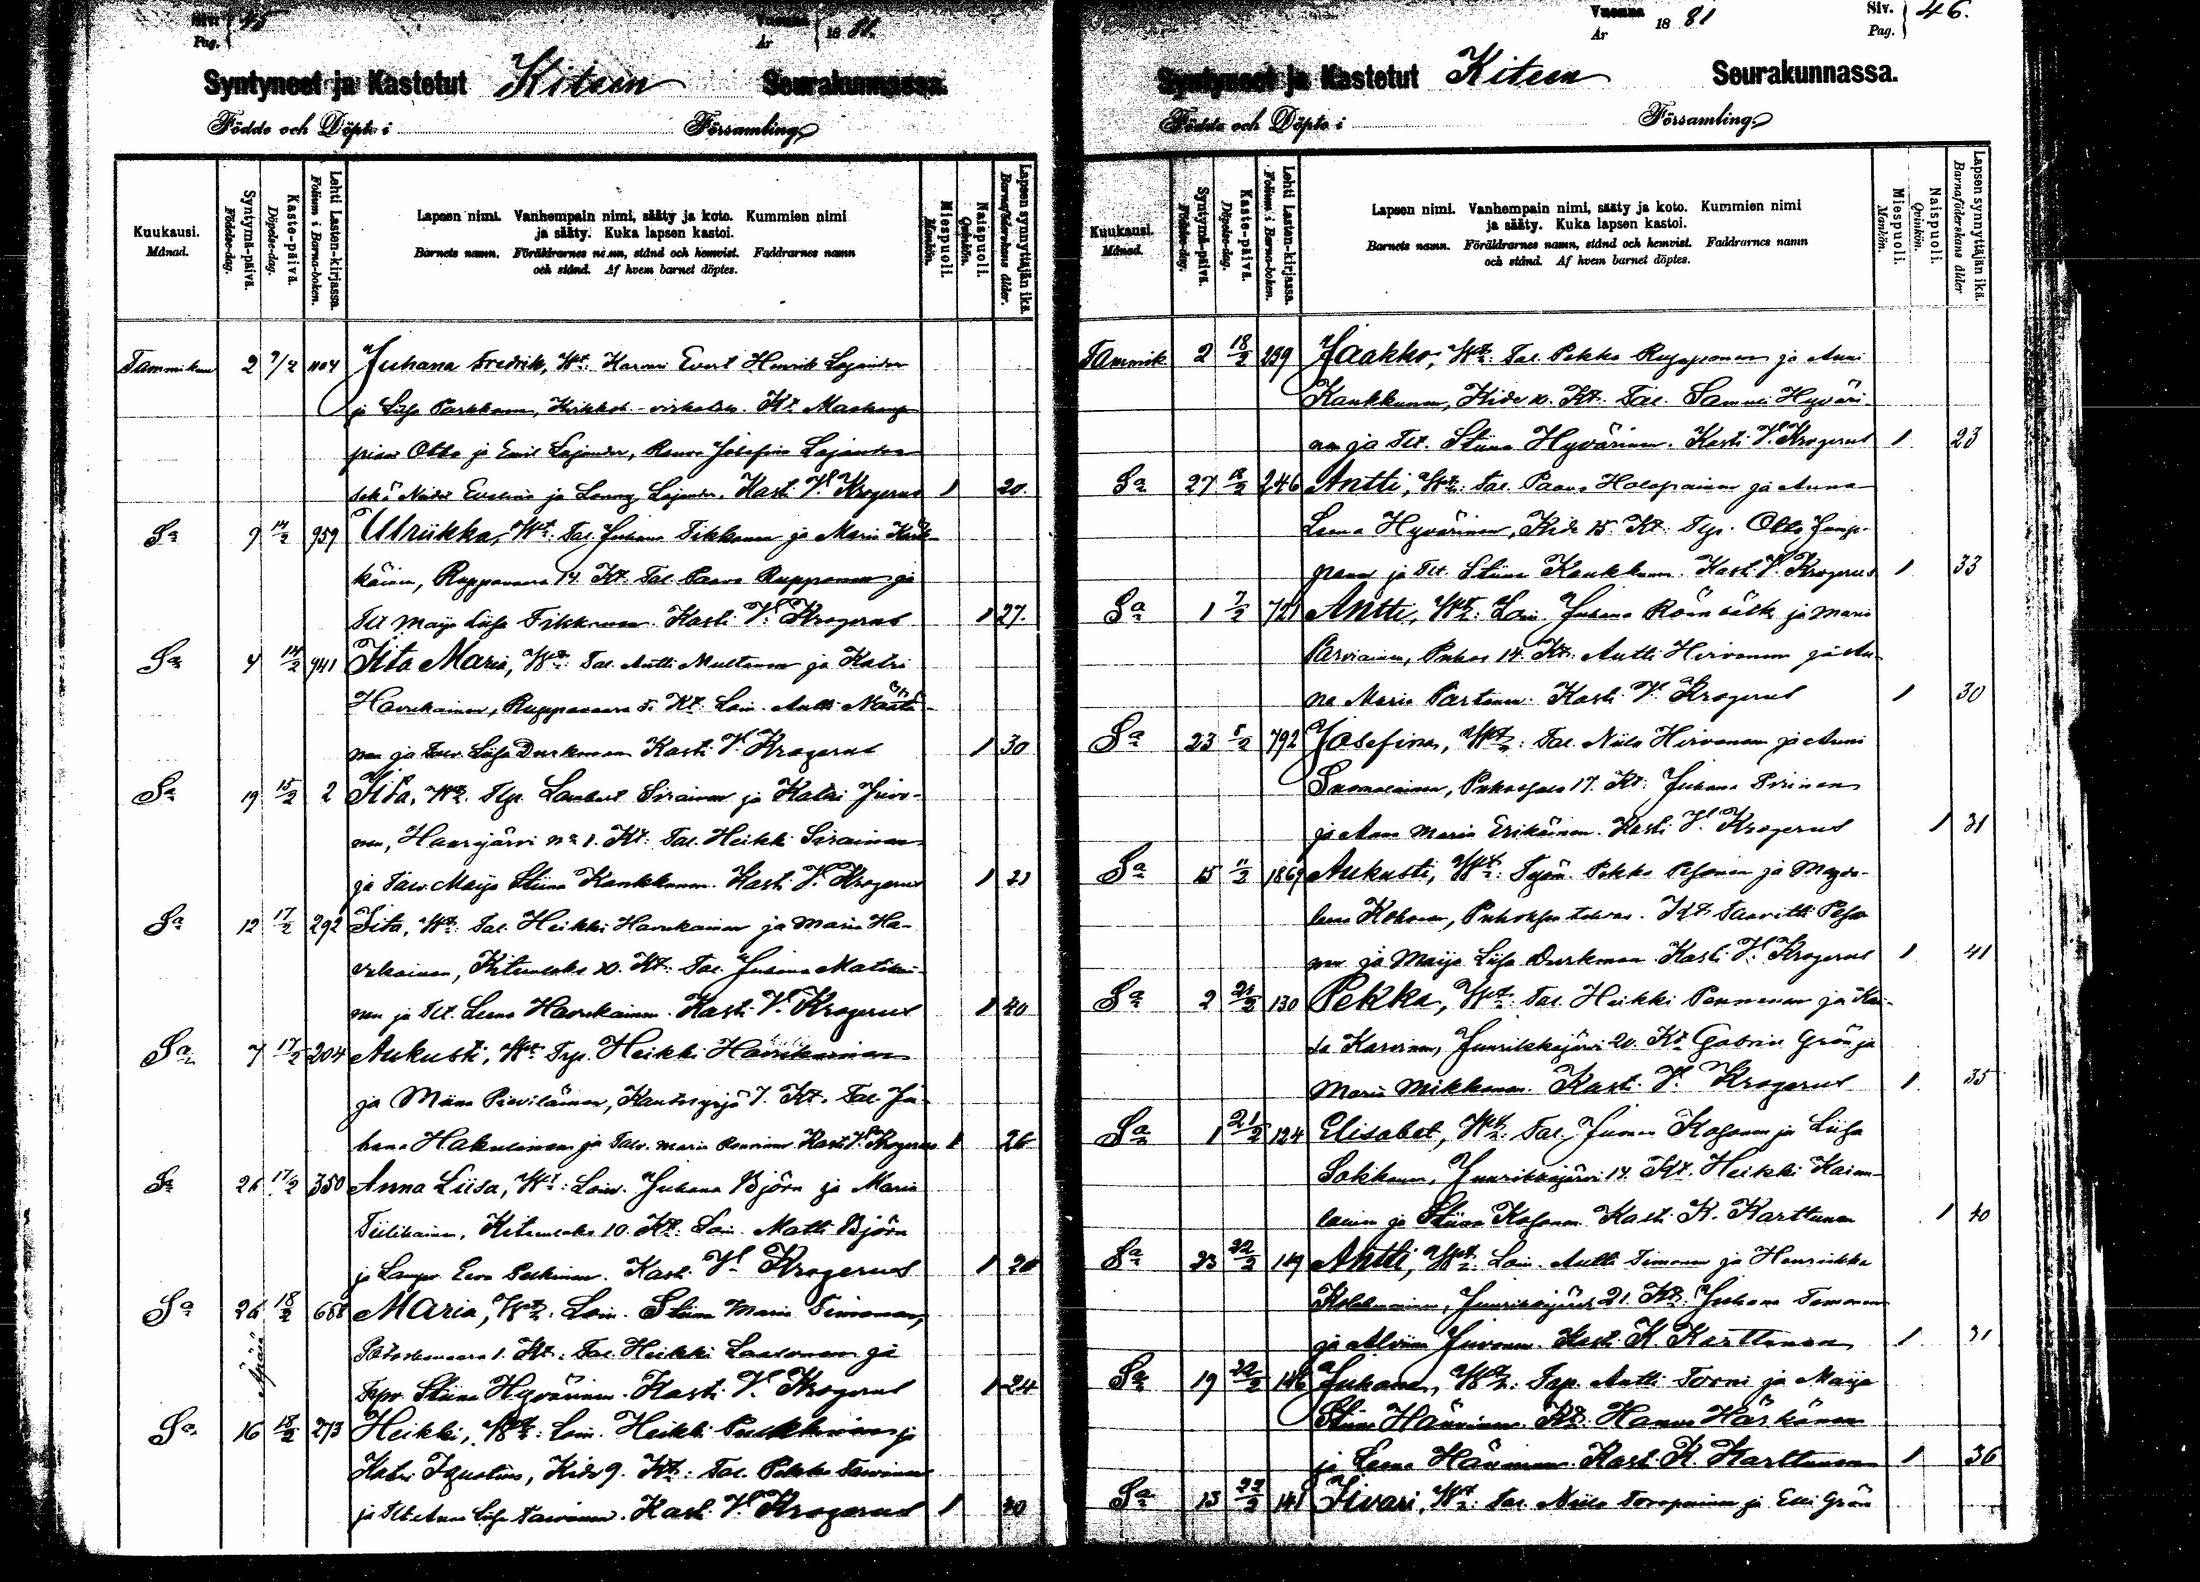 Siv. 45
Pag.
Vuonna 1881.
År
Syntyneet ja Kastetut Kiteen Seurakunnassa.
Födde och Döpte i Församling
Kuukausi. Månad.
Syntymä-päivä. Födelse-dag.
Kaste-päivä. Döpelse-dag.
Lehti Lasten-kirjassa. Folium i Barna-boken.
Lapsen nimi. Vanhempain nimi, sääty ja koto. Kummien nimi
ja sääty. Kuka lapsen kastoi.
Barnets namn. Föräldrarnes namn, stånd och hemvist. Faddrarnes namn
och stånd. Af hvem barnet döptes.
Miespuoli. Mankön.
Naispuoli. Qvinkön.
Lapsen synnyttäjän ikä. Barnaföderskans ålder.
Tammikuu 2 7/2 1104 Juhana Fredrik, Wt: Karvari Evert Henrik Lajander
ja Liisa Parkkonen, Kirkkoh.
Otto ja Emil Lajander, Rouva Josefina Lajander
sekä Neidit Evelina ja Lajander. Kasti V. Krogerus 1 20.
Sa 9 14/2 959 Ulriikka, Wt: Tal. Juhana Tikkanen ja Maria
Ruppovaara 14. Kt. Tal. Paavo Rupponen ja
Tlt Maija Liisa Tikkanen. Kasti V. Krogerus 1 27.
Sa 4 14/2 941 Iita Maria, Wt: Tal. Antti Multanen ja Katri
Havukainen, Ruppovaara 5. Kt. Lois. Antti
nen ja Liisa Durkman Kasti V. Krogerus 1 30
Sa 19 15/2 2 Iita, Wt. Tlp. Lambert Sirainen ja Katri Juvo-
nen, Haarajärvi No 1. Kt: Tal. Heikki Sirainen
ja Maija Stiina Kankkunen. Kasti V. Krogerus 1
Sa 12 17/2 292 Iita, Wt. Tal. Heikki Havukainen ja Maria Ha-
vukainen, Kiteenlaks 20. Kt: Tal. Juhana Matikai-
nen ja Tlt. Leena Havukainen. Kasti V. Krogerus 1 40
Sa 7 17/2 204 Aukusti, Wt. Heikki Havukainen
ja Miina 7. Kt. Tal. Ju-
hana Hakulinen ja Maria Kasti V. Krogerus 1 26
Sa 26 17/2 350 Anna Liisa, Wt: Lois. Juhana Björn ja Maria
Tiilikainen, Kiteenlaks 10. Kt. Lois. Matti Björn
ja Eeva Pulkkinen. Kasti V. Krogerus 1
Sa 26 18/2 688 Maria, Wt. Lois. Stiina Maria Timonen,
Potoskavaara 1. Kt: Tal. Heikki Laasonen ja
Stiina Hyvärinen. Kasti V. Krogerus 1 24
Äpärä
Sa 16 18/2 273 Heikki, Wt: Lois. Heikki Pulkkinen ja
Katri Ignatius, Kide 9. Kt: Tal. Pekka
ja Tlt Anna Liisa Kasti V. Krogerus 1 40
Vuonna 1881
År
Siv. 46.
Pag.
Syntyneet ja Kastetut Kiteen Seurakunnassa.
Födde och Döpte i Församling
Kuukausi. Månad.
Syntymä-päivä. Födelse-dag.
Kaste-päivä. Döpelse-dag.
Lehti Lasten-kirjassa. Folium i Barna-boken.
Lapsen nimi. Vanhempain nimi, sääty ja koto. Kummien nimi
ja sääty. Kuka lapsen kastoi.
Barnets namn. Föräldrarnes namn, stånd och hemvist. Faddrarnes namn
och stånd. Af hvem barnet döptes.
Miespuoli. Mankön.
Naispuoli. Qvinkön.
Lapsen synnyttäjän ikä. Barnaföderskans ålder
Tammik 2 18/2 239 Jaakko, Wt: Tal. Pekka Rupponen ja Anni
Kankkunen, Kide 10. Kt. Tal. Samuli Hyväri-
nen ja Tlt. Stiina Hyvärinen. Kasti V. Krogerus 1 23
Sa 27 18/2 246 Antti, Wt: Tal. Paavo Holopainen ja Anna
Leena Hyvärinen, Kide 15. Kt: Tlp. Otto
ja Tlt. Stiina Kankkunen. Kasti V. Krogerus 1 33
Sa 1 7/2 721 Antti, Wt: Lois. Juhana Römbäck ja Maria
Parviainen, Puhos 14. Kt: Antti Hirvonen ja An-
na Maria Partanen. Kasti V. Krogerus 1 30
Sa 23 5/2 792 Josefina, Wt: Tal. Niilo Hirvonen ja Anni
Suomalainen, 17. Kt: Juhana Piirinen
ja Anna Maria Erikäinen. Kasti V. Krogerus 1 31
Sa 15 11/2 1869 Aukusti, Wt: Pekka Pesonen ja Magda-
lena Kokonen, Kt. Taavitti Peso-
nen ja Maija Liisa Durkman. Kasti V. Krogerus 1 41
Sa 2 21/2 130 Pekka, Wt: Tal. Heikki Pennanen ja Kai-
sa Karvinen, Juurikkajärvi 20. Kt. Gabriel Grön ja
Maria Mikkonen. Kasti V. Krogerus 1 35
Sa 1 21/2 124 Elisabet, Wt: Tal. Kosonen ja Liisa
Sokkanen, Juurikkajärvi 14. Kt. Heikki Kaima-
lainen ja Stiina Kosonen. Kasti K. Karttunen 1 40
Sa 23 22/2 149 Antti, Wt. Lois. Antti Timonen ja Henriikka
Kolehmainen, Juurikkajärvi 21. Kt. Juhana Timonen
ja Alviina Juvonen. Kasti K. Karttunen 1 31
Sa 19 22/2 146 Juhana, Wt: Antti Torni ja Maija
Stiina Hänninen. Kt: Hannu Härkönen
ja Leena Hänninen. Kasti K. Karttunen 1 36
Sa 13 22/2 141 Iivari, Wt: Tal. Niilo Toropainen ja Elli Grön